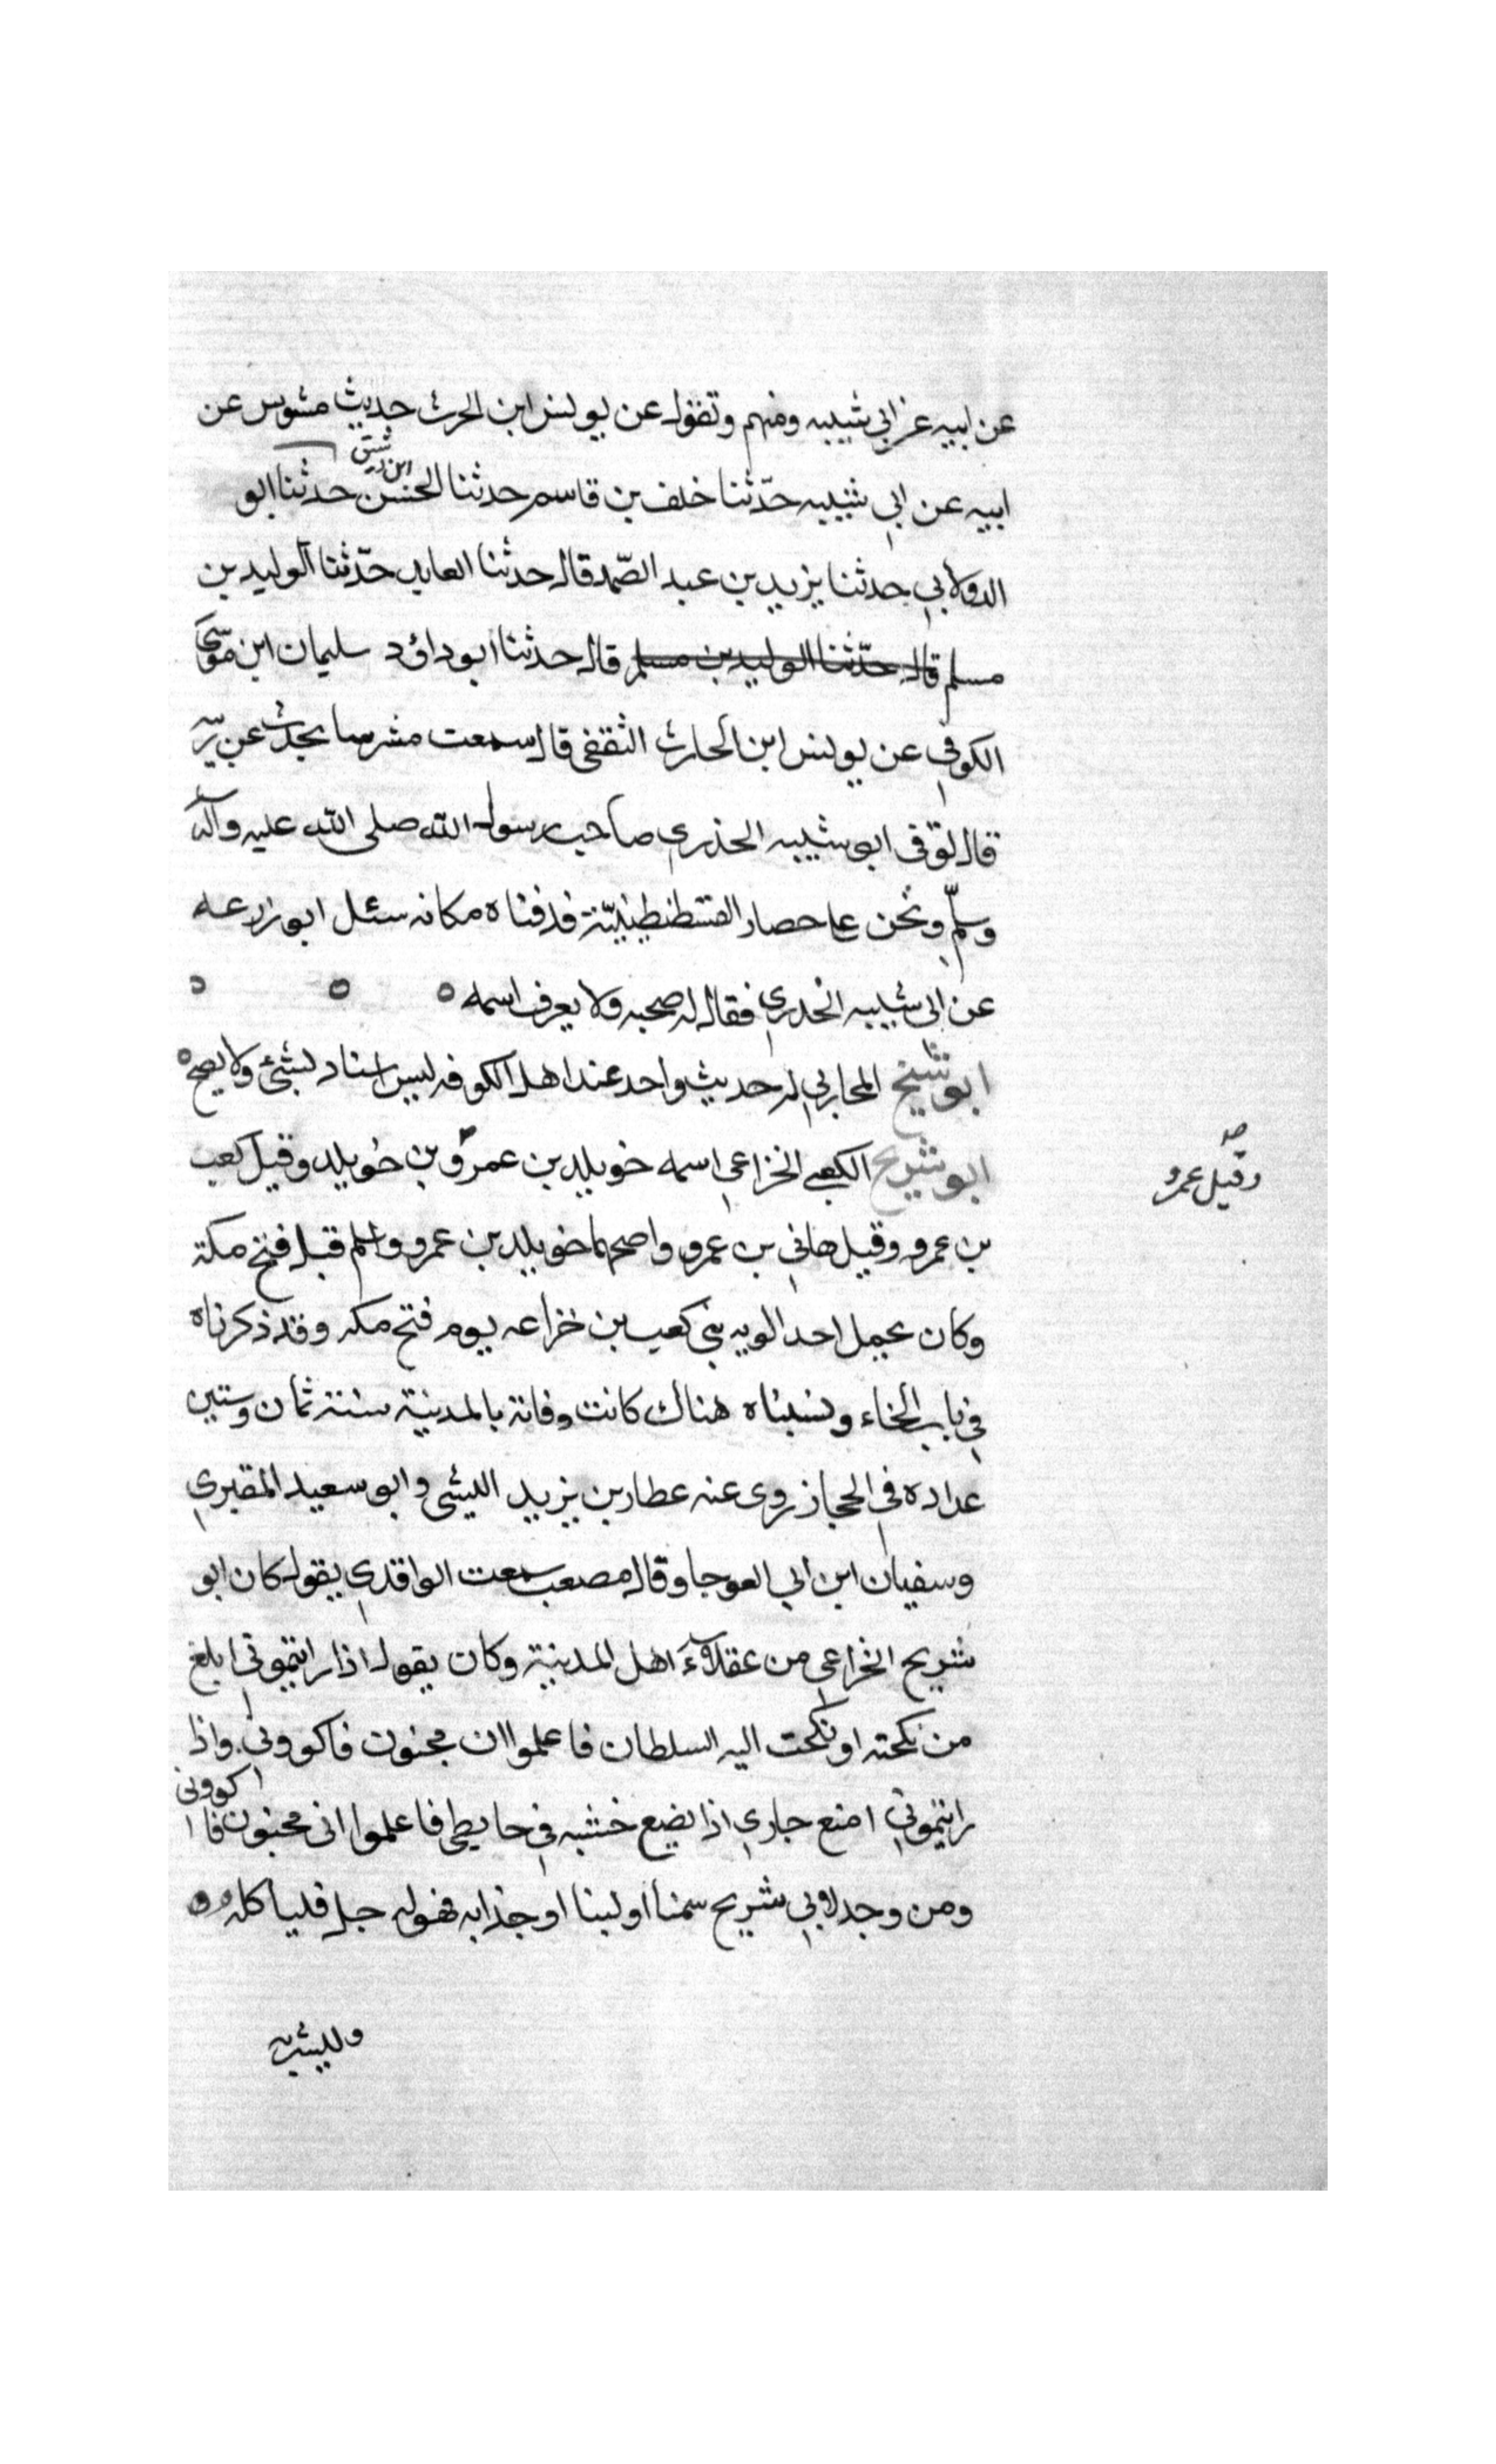 عن ابيه عن ابي شيبه ومنهم وتقول عن يونس ابن الحرث حديث مشوس عن
ابيه عن ابي شيبه حدّثنا خلف بن قاسم حدثنا الحسن ابن رشيق حدثنا ابو
الدولابي حدثنا يزيد بن عبد الصّمد قال حدثنا العايد حدّثنا الوليد بن
مسلم قال حدّثنا الوليد بن مسلم قال حدثنا ابو داؤد سليمان ابن موسى
الكوفي عن يونس ابن الحارث الثقفي قال سمعت مشرسا يحدث عن
قال توفى ابو شيبه الخذري صاحب رسول الله صلى الله عليه وآله
وسلّم ونحن على حصار القسطنطينيّة فدفناه مكانه سئل ابو زرعه
عن ابى شيبه الخدري فقال له صحبه ولا يعرف اسمه ه ه ه
ابو شيخ المحاربي له حديث واحد عند اهل الكوفه ليس اسناد بشئ ولا يصح ه
ابو شريح الكعبي الخزاعي اسمه خويلد بن عمرو بن خويلد وقيل كعب
وقيل عمرو صح
بن عمرو وقيل هاني بن عمرو واصحها خويلد بن عمرو واسلم قبل فتح مكة
وكان يحمل احد الويه بني كعب بن خزاعه يوم فتح مكه وقد ذكرناه
في باب الخاء ونسبناه هناك كانت وفاته بالمدينة سنة ثمان وستين
عداده في الحجاز روى عنه عطار بن يزيد الليثي وابو سعيد المقبري
وسفيان ابن ابي العوجا وقال مصعب سمعت الواقدي يقول كان ابو
شريح الخزاعي من عقلاء اهل المدينة وكان يقول اذا رايتموني ابلغ
من نكحته او نكحت اليه السلطان فاعلموا ان مجنون فاكووني واذا
رايتموني امنع جاري اذا يضع خشبه في حايطي فاعلموا انى مجنون فاكووني
ومن وجد لابي شريح سمنا او لبنا او جذابه فهو له حل فلياكله
وليشرب